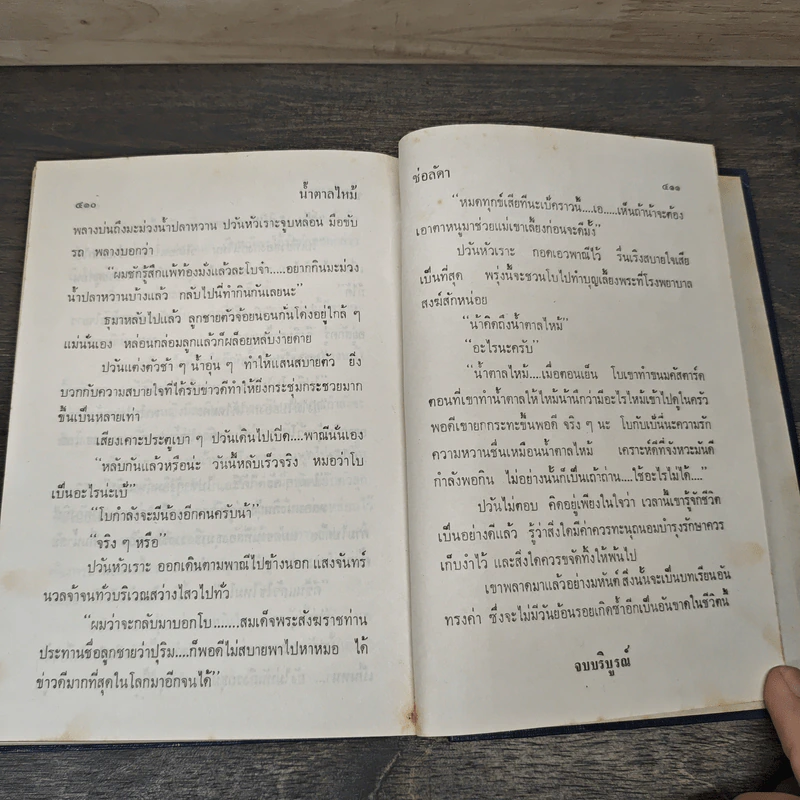 ๕๑๐
น้ำตาลไหม้
พลางบ่นถึงมะม่วงน้ำปลาหวาน ปวันหัวเราะจูบหล่อน มือขับ
รถ พลางบอกว่า
“ผมชักรู้สึกแพ้ท้องมั่งแล้วละโบจ๋า....อยากกินมะม่วง
น้ำปลาหวานบ้างแล้ว กลับไปนี่ทำกินกันเลยนะ”
ธุมาหลับไปแล้ว ลูกชายตัวจ้อยนอนก้นโด่งอยู่ใกล้ ๆ
แม่นั่นเอง หล่อนกล่อมลูกแล้วก็ผล็อยหลับง่ายดาย
ปวันแต่งตัวช้า ๆ น้ำอุ่น ๆ ทำให้แสนสบายตัว ยิ่ง
บวกกับความสบายใจที่ได้รับข่าวดีทำให้ยิ่งกระชุ่มกระชวยมาก
ขึ้นเป็นหลายเท่า
เสียงเคาะประตูเบา ๆ ปวันเดินไปเปิด....พาณีนั่นเอง
“หลับกันแล้วหรือน่ะ วันนี้หลับเร็วจริง หมอว่าโบ
เป็นอะไรน่ะเบ้”
“โบกำลังจะมีน้องอีกคนครับน้า”
“จริง ๆ หรือ”
ปวันหัวเราะ ออกเดินตามพาณีไปข้างนอก แสงจันทร์
นวลจ้าจนทั่วบริเวณสว่างไสวไปทั่ว
“ผมว่าจะกลับมาบอกโบ.......สมเด็จพระสังฆราชท่าน
ประทานชื่อลูกชายว่าปุริม....ก็พอดีไม่สบายพาไปหาหมอ ได้
ข่าวดีมากที่สุดในโลกมาอีกจนได้”
ช่อลัดา
๕๑๑
“หมดทุกข์เสียทีนะเบ้คราวนี้....เอ....เห็นถ้าน้าจะต้อง
เอาตาหนูมาช่วยแม่เขาเลี้ยงก่อนจะดีมั้ง”
ปวันหัวเราะ กอดเอวพาณีไว้ รื่นเริงสบายใจเสีย
เป็นที่สุด พรุ่งนี้จะชวนโบไปทำบุญเลี้ยงพระที่โรงพยาบาล
สงฆ์สักหน่อย
“น้าคิดถึงน้ำตาลไหม้”
“อะไรนะครับ”
“น้ำตาลไหม้....เมื่อตอนเย็น โบเขาทำขนมคัสตาร์ด
ตอนที่เขาทำน้ำตาลให้ไหม้น้านึกว่ามีอะไรไหม้เข้าไปดูในครัว
พอดีเขายกกระทะขึ้นพอดี จริง ๆ นะ โบกับเบ้นี่นะความรัก
ความหวานชื่นเหมือนน้ำตาลไหม้ เคราะห์ดีที่จังหวะมันดี
กำลังพอกิน ไม่อย่างนั้นก็เป็นเถ้าถ่าน....ใช้อะไรไม่ได้....”
ปวันไม่ตอบ คิดอยู่เพียงในใจว่า เวลานี้เขารู้จักชีวิต
เป็นอย่างดีแล้ว รู้ว่าสิ่งใดมีค่าควรทะนุถนอมบำรุงรักษาควร
เก็บงำไว้ และสิ่งใดควรขจัดทิ้งให้พ้นไป
เขาพลาดมาแล้วอย่างมหันต์ สิ่งนั้นจะเป็นบทเรียนอัน
ทรงค่า ซึ่งจะไม่มีวันย้อนรอยเกิดซ้ำอีกเป็นอันขาดในชีวิตนี้
จบบริบูรณ์